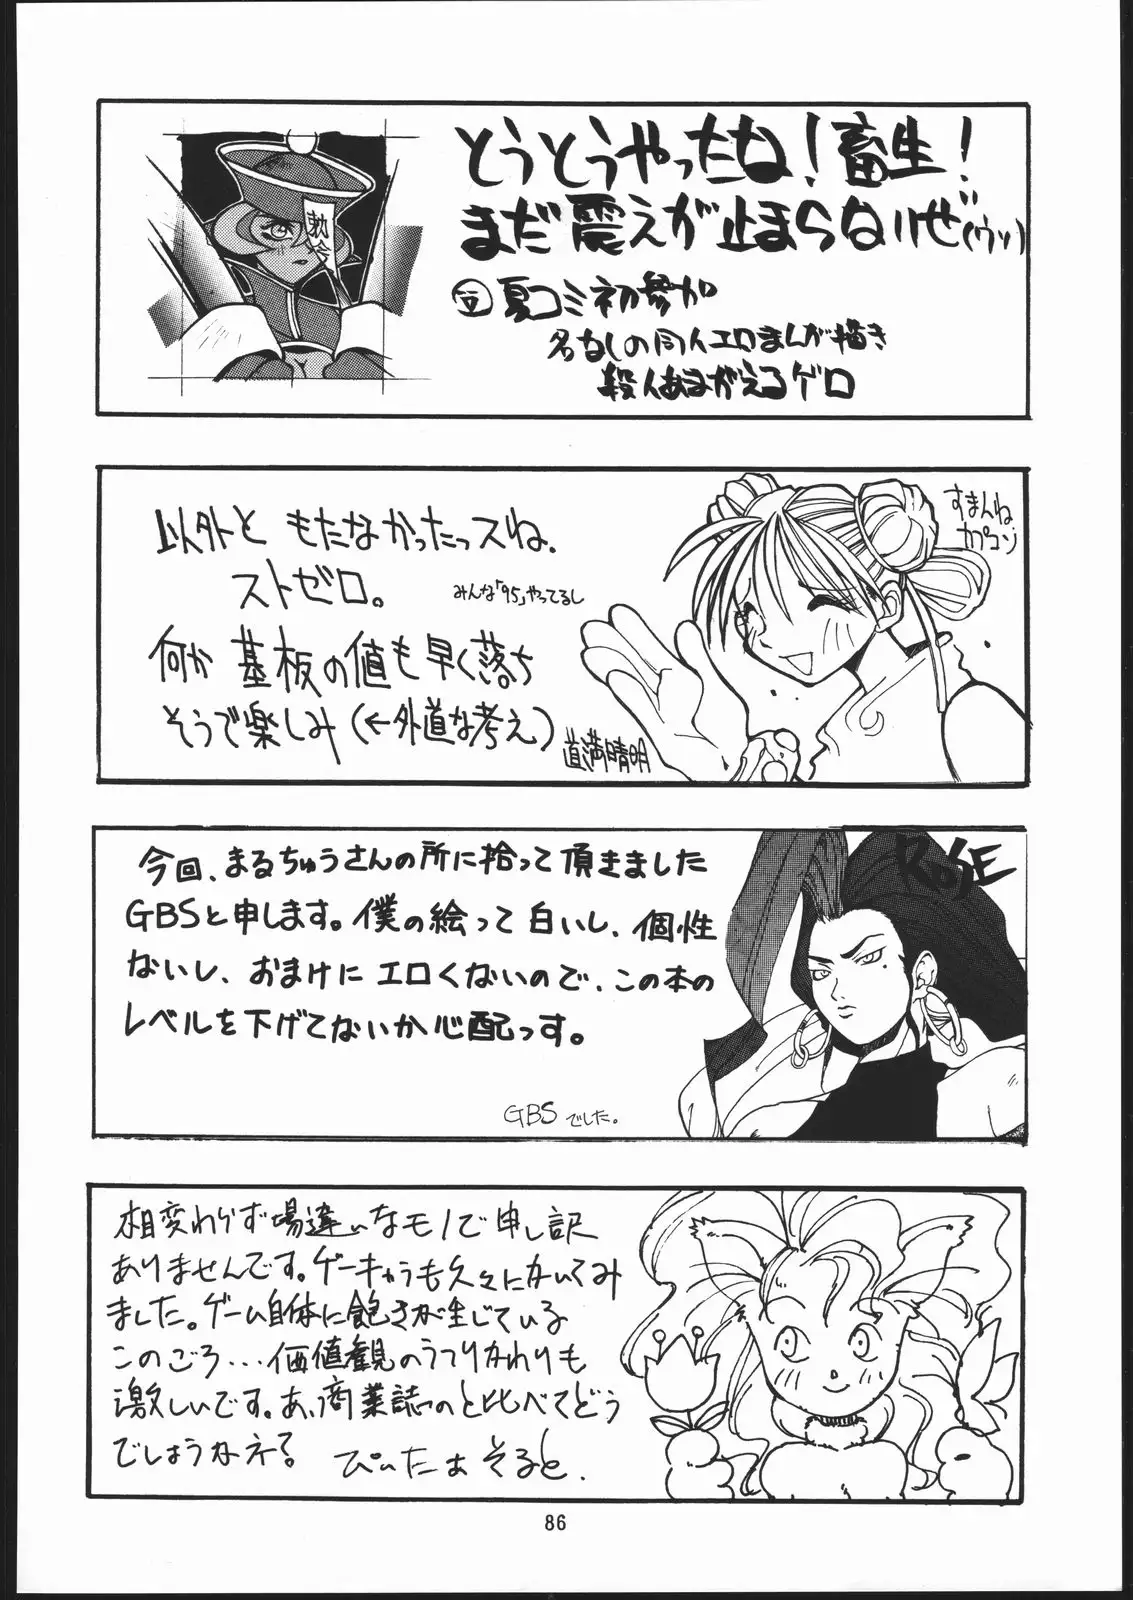 とうとうやったね！畜生！
まだ震えが止まらないぜ(ウッ)
夏コミ初参加
名なしの同人エロまんが描き
殺人あまがえるゲロ
勅令
以外と もたなかったっスね.
ストゼロ。
みんな「95」やってるし
何か 基板の値も早く落ち
そうで楽しみ(←外道な考え)
道満晴明
すまんね
カプコン
今回、まるちゅうさんの所に拾って頂きました
GBSと申します。僕の絵って白いし、個性
ないし、おまけにエロくないので、この本の
レベルを下げてないか心配っす。
GBSでした。
ROSE
相変わらず場違いなモノで申し訳
ありませんです。ゲーキャラも久々にかいてみ
ました。ゲーム自体に飽きが生じている
このごろ...価値観のうつりかわりも
激しいです。あ、商業誌のと比べてどう
でしょうかネ?
ぴぃたぁ そると.
86